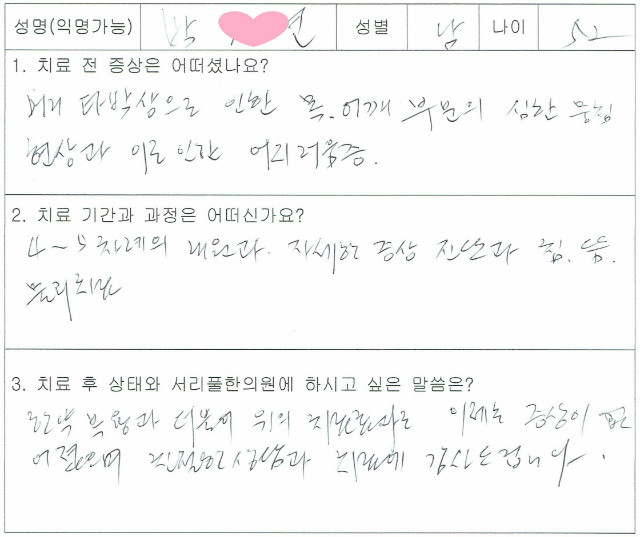 성명(익명가능) 박 연 성별 남 나이 52
1. 치료 전 증상은 어떠셨나요?
머리 타박상으로 인한 목.어깨 부분의 심한 뭉침
현상과 이로인한 어지러움증.
2. 치료 기간과 과정은 어떠신가요?
4~5차례의 내원과. 자세한 증상 진단과 침. 뜸.
물리치료
3. 치료 후 상태와 서리풀한의원에 하시고 싶은 말씀은?
한약 복용과 더불어 위의 치료효과로 이제는 증상이
친절한 상담과 치료에 감사드립니다.